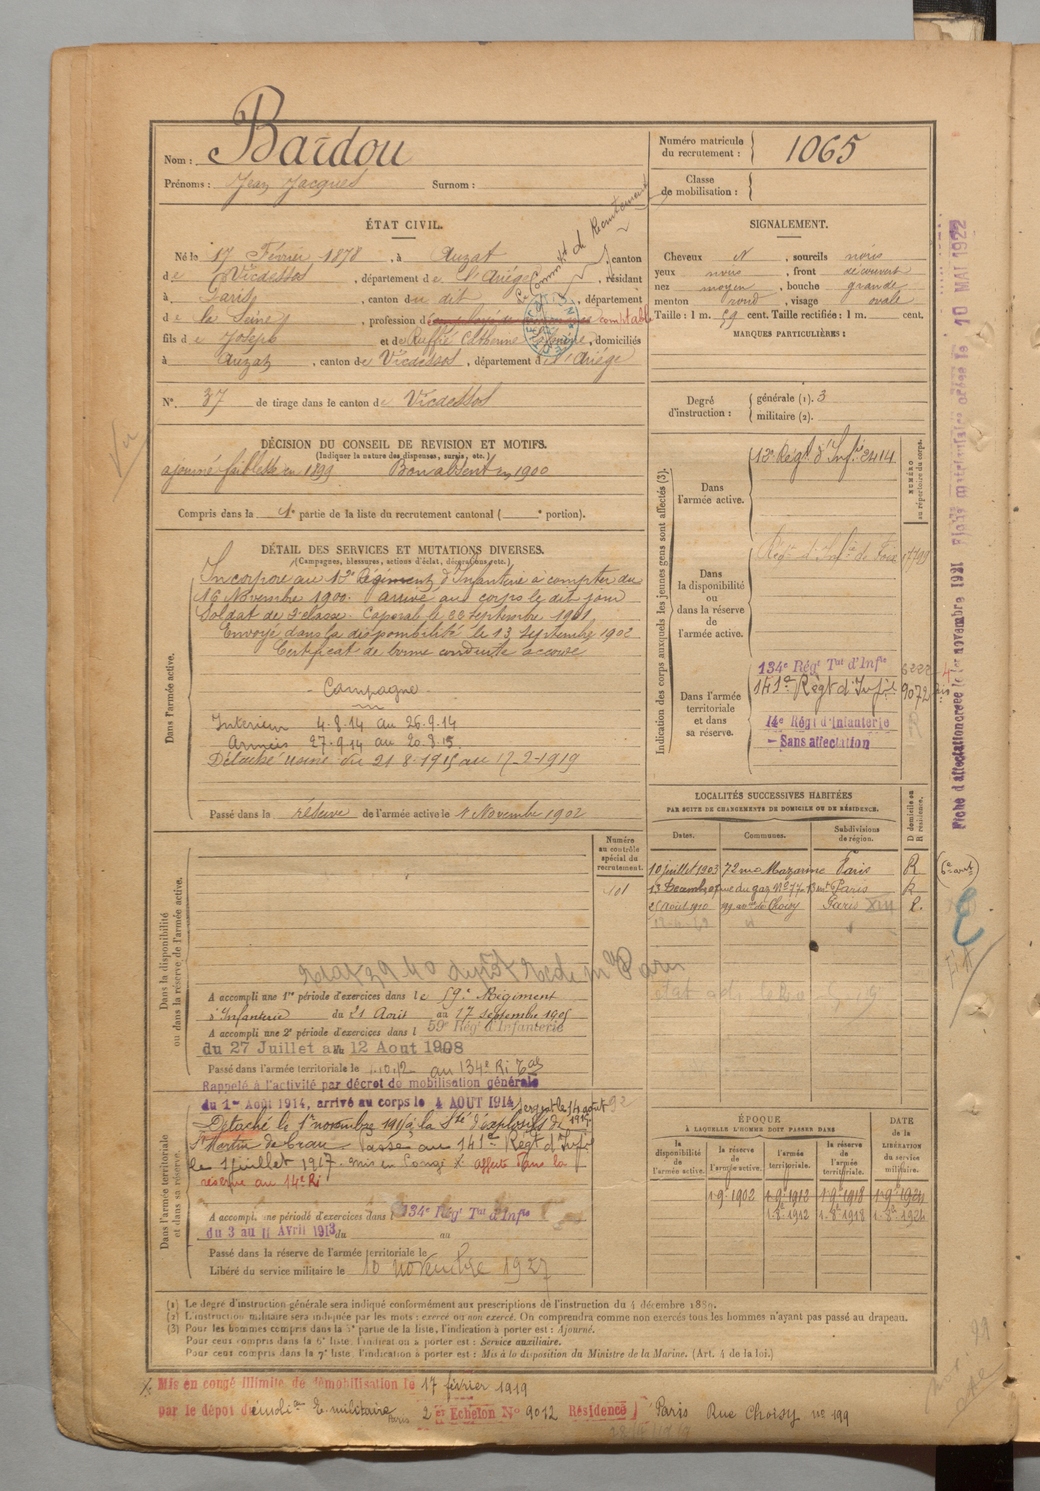 Nom : Bardou
Prénoms : Jean Jacques Surnom :
Numéro matricule du recrutement : 1065
Classe de mobilisation :
ÉTAT CIVIL.
Né le 17 Février 1878, à Auzat, canton
de Vicdessos, département de l'Ariège, résidant
à Paris, canton du dit, département
de la Seine, profession d comptable
fils de Joseph et de Ruffié Catherine, domiciliés
à Auzat, canton de Vicdessos, département de l'Ariège
Le Command de Recrutement
N° 37 de tirage dans le canton de Vicdessos
SIGNALEMENT.
Cheveux N, sourcils noirs
yeux noirs, front découvert
nez moyen, bouche grande
menton rond, visage ovale
Taille : 1 m. 59 cent. Taille rectifiée : 1 m. cent.
MARQUES PARTICULIÈRES :
Degré d'instruction : générale (1). 3
militaire (2).
DÉCISION DU CONSEIL DE REVISION ET MOTIFS.
(Indiquer la nature des dispenses, sursis, etc.)
ajourné faiblesse en 1899 Bon absent en 1900
Compris dans la 1e partie de la liste du recrutement cantonal ( e portion).
DÉTAIL DES SERVICES ET MUTATIONS DIVERSES.
(Campagnes, blessures, actions d'éclat, décorations, etc.)
Dans l'armée active.
Incorporé au Régiment d'Infanterie à compter du
16 Novembre 1900. Arrivé au corps le dit jour
Soldat de 2e classe. Caporal le 22 septembre 1901
Envoyé dans la disponibilité le 13 Septembre 1902
Certificat de bonne conduite accordé
- Campagne -
Intérieur 4.8.14 au 26.9.14
Armées 27.9.14 au 20.8.15
Détaché usine du 21-8-1915 au 17-2-1919
Passé dans la réserve de l'armée active le 1 Novembre 1902
Indication des corps auxquels les jeunes gens sont affectés (3).
NUMÉRO au répertoire du corps.
Dans l'armée active.
Régt d'Infie 2414
Dans la disponibilité ou dans la réserve de l'armée active.
Régt d'Infie de Foix
Dans l'armée territoriale et dans sa réserve.
134e Régt Tal d'Infie
141e Régt d'Infie 9072 bis
14e Régt d'Infanterie
- Sans affectation
LOCALITÉS SUCCESSIVES HABITÉES
PAR SUITE DE CHANGEMENTS DE DOMICILE OU DE RÉSIDENCE.
Dates. Communes. Subdivisions de région. D domicile ou R résidence.
10 juillet 1903 72 rue Mazarine Paris R (6e arrt)
13 Décemb. 07 rue du gaz N° 77 13 arrt Paris R
25 Août 1910 199 av. de Choisy Paris XIII R.
Numéro au contrôle spécial du recrutement.
101
Dans la disponibilité ou dans la réserve de l'armée active.
A accompli une 1re période d'exercices dans le 59e Régiment
d'Infanterie du 21 Août au 17 septembre 1905
A accompli une 2e période d'exercices dans l 59e Régt d'Infanterie
du 27 Juillet au 12 Aout 1908
Passé dans l'armée territoriale le 1.10.12 au 134e Ri Tal
Rappelé à l'activité par décret de mobilisation générale
du 1er Août 1914, arrivé au corps le 4 AOUT 1914 Sergent le 14 août 1915
Dans l'armée territoriale et dans sa réserve.
Détaché le 1er novembre à la Sté d'explosifs de
St Martin de Crau. Passé au 141e Régt d'Infie
le 1 juillet 1917. Mis en Congé X Affecté dans la
réserve au 14e Ri
A accompli une période d'exercices dans l 134e Régt Tal d'Infie
du 3 au 11 Avril 1913 du au
Passé dans la réserve de l'armée territoriale le
Libéré du service militaire le 10 novembre 1927
ÉPOQUE À LAQUELLE L'HOMME DOIT PASSER DANS
la disponibilité de l'armée active. la réserve de l'armée active. l'armée territoriale. la réserve de l'armée territoriale.
DATE de la LIBÉRATION du service militaire.
1-9e 1902 1-9e 1912 1-9e 1918 1-9e 1924
1-8e 1912 1-8e 1918 1-8e 1924
(1) Le degré d'instruction générale sera indiqué conformément aux prescriptions de l'instruction du 4 décembre 1889.
(2) L'instruction militaire sera indiquée par les mots : exercé ou non exercé. On comprendra comme non exercés tous les hommes n'ayant pas passé au drapeau.
(3) Pour les hommes compris dans la 5e partie de la liste, l'indication à porter est : Ajourné.
Pour ceux compris dans la 6e liste, l'indication à porter est : Service auxiliaire.
Pour ceux compris dans la 7e liste, l'indication à porter est : Mis à la disposition du Ministre de la Marine. (Art. 4 de la loi.)
Mis en congé illimité de démobilisation le 17 février 1919
par le dépôt d Échelon N° 9012 Résidence Paris Rue Choisy no 199
Fiche d'affectation créée le 1er novembre 1921 Fiche matriculaire créée le 10 MAI 1922